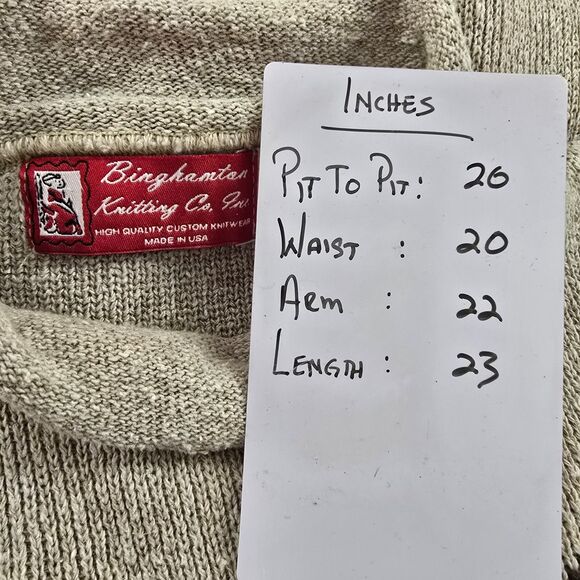 Binghamton
Knitting Co. Inc
HIGH QUALITY CUSTOM KNITWEAR
MADE IN USA
INCHES
PIT TO PIT: 20
WAIST : 20
ARM : 22
LENGTH : 23